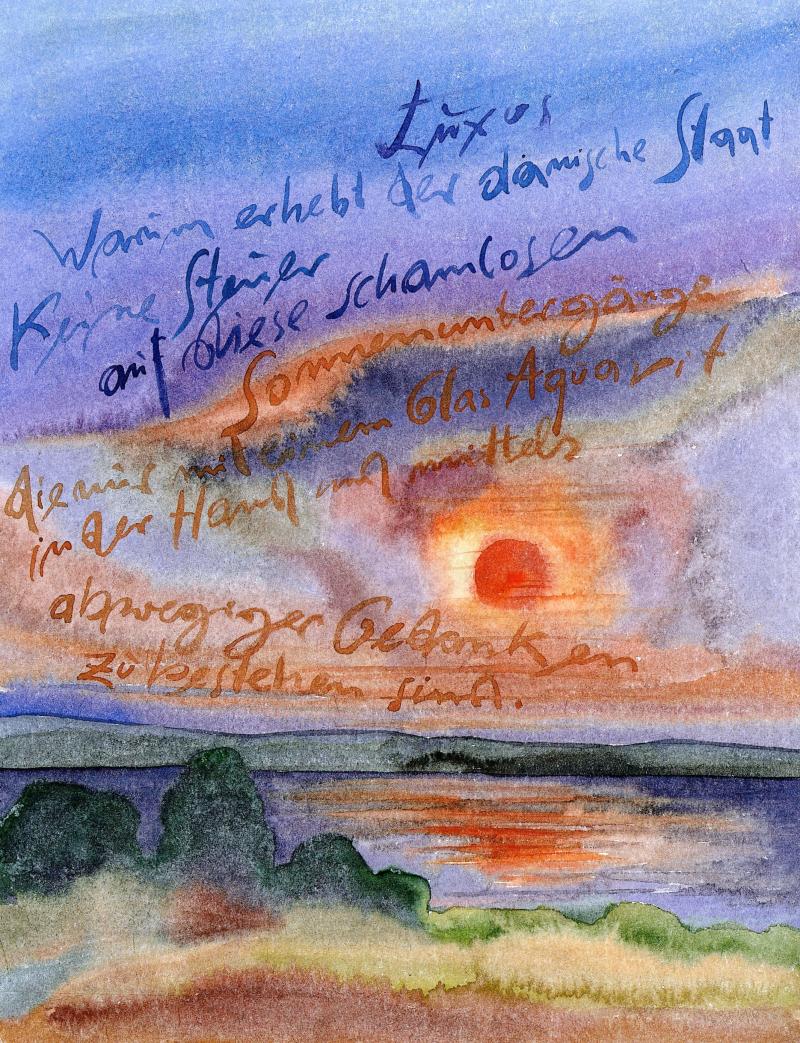 Luxus
Warum erhebt der dänische Staat
Keine Steuer
auf diese schamlosen
Sonnenuntergänge
die nur mit einem Glas Aquavit
in der Hand und mittels
abwegiger Gedanken
zu bestehen sind.